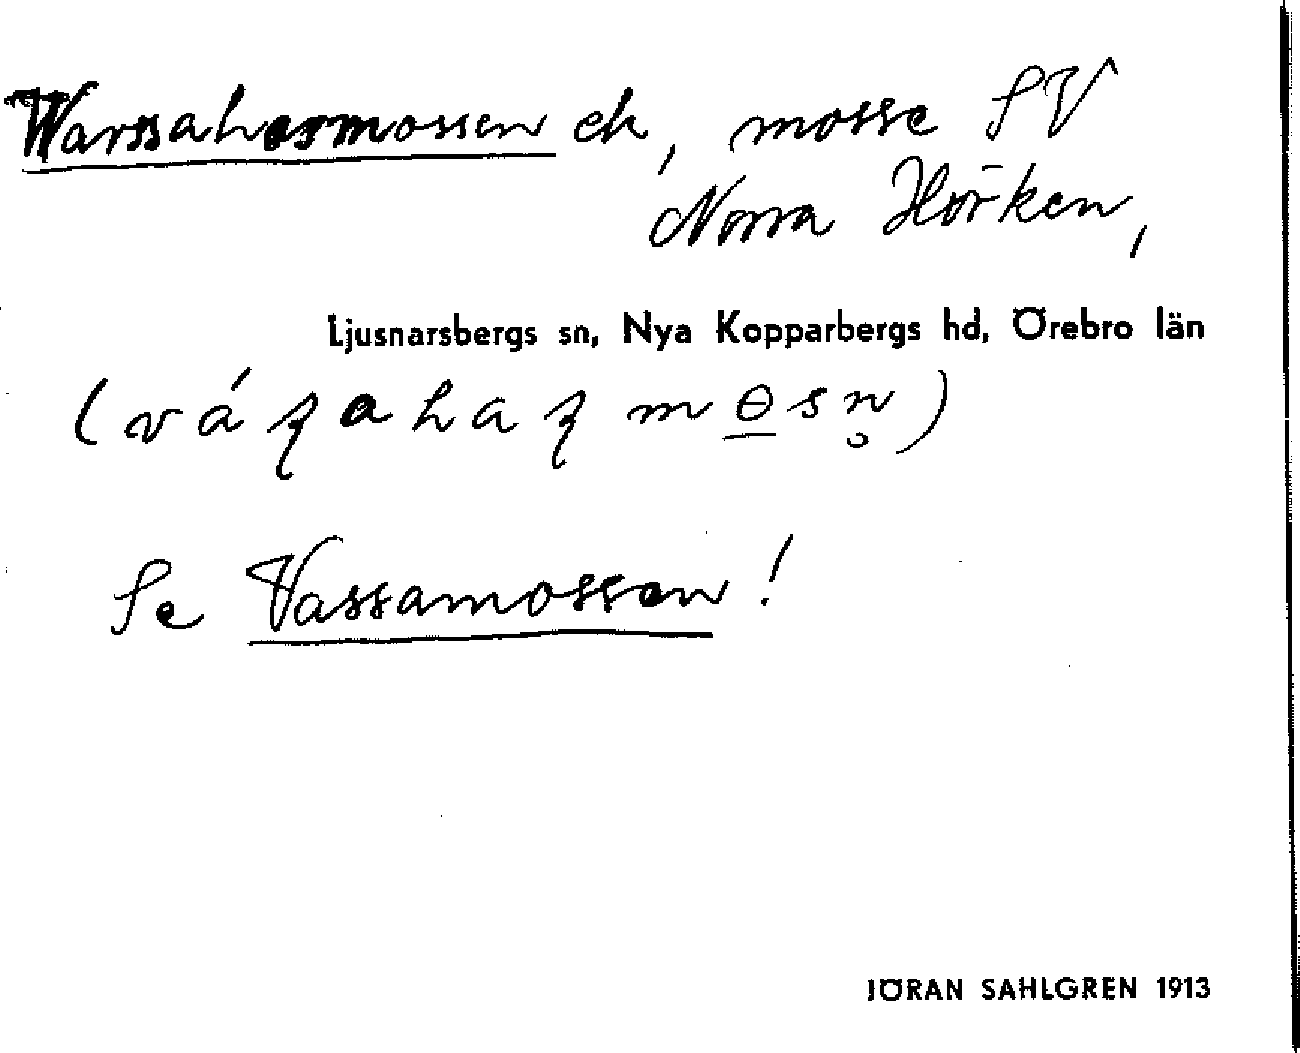 Warssahasmossen ek, mosse SV
Norra Hörken,
Ljusnarsbergs sn, Nya Kopparbergs hd, Örebro län
(vá ʂ a h a ʂ m ɵ̠ s n̥)
Se Vassamossen!
JÖRAN SAHLGREN 1913